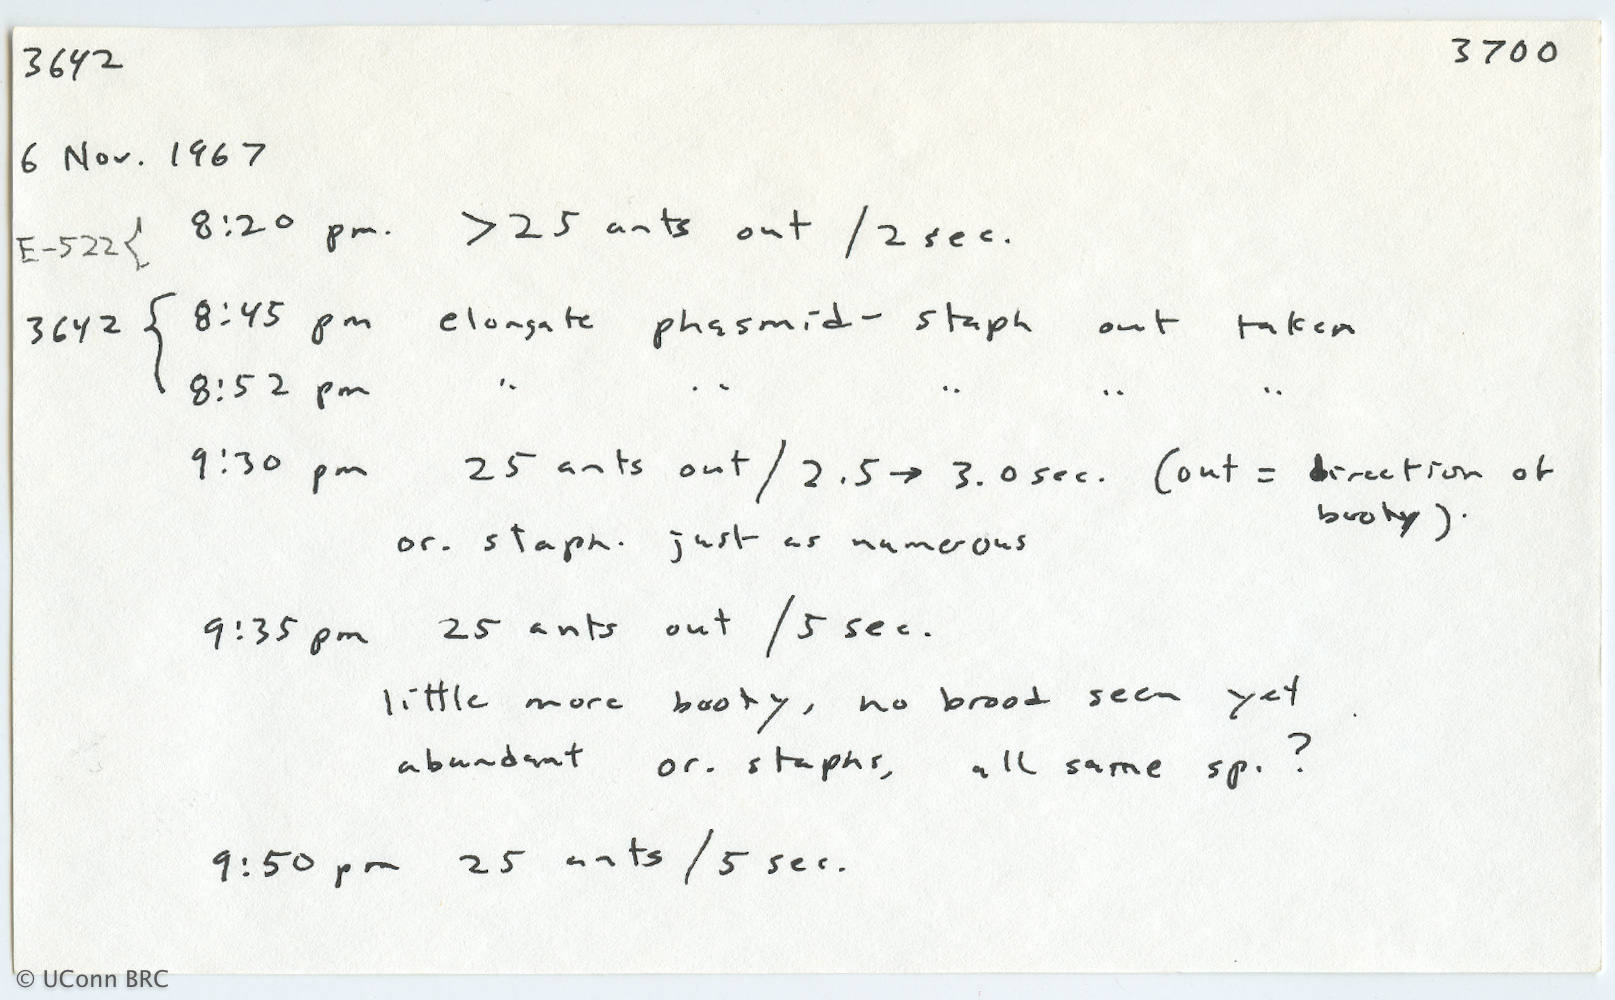 3642 3700
6 Nov. 1967
E-522{ 8:20 pm. >25 ants out /2 sec.
3642 { 8:45 pm elongate phasmid- staph out taken
8:52 pm " " " " "
9:30 pm 25 ants out / 2.5 → 3.0 sec. (out = direction of
booty).
or. staph. just as numerous
9:35 pm 25 ants out /5 sec.
little more booty, no brood seen yet
abundant or. staphs, all same sp.?
9:50 pm 25 ants /5 sec.
© UConn BRC